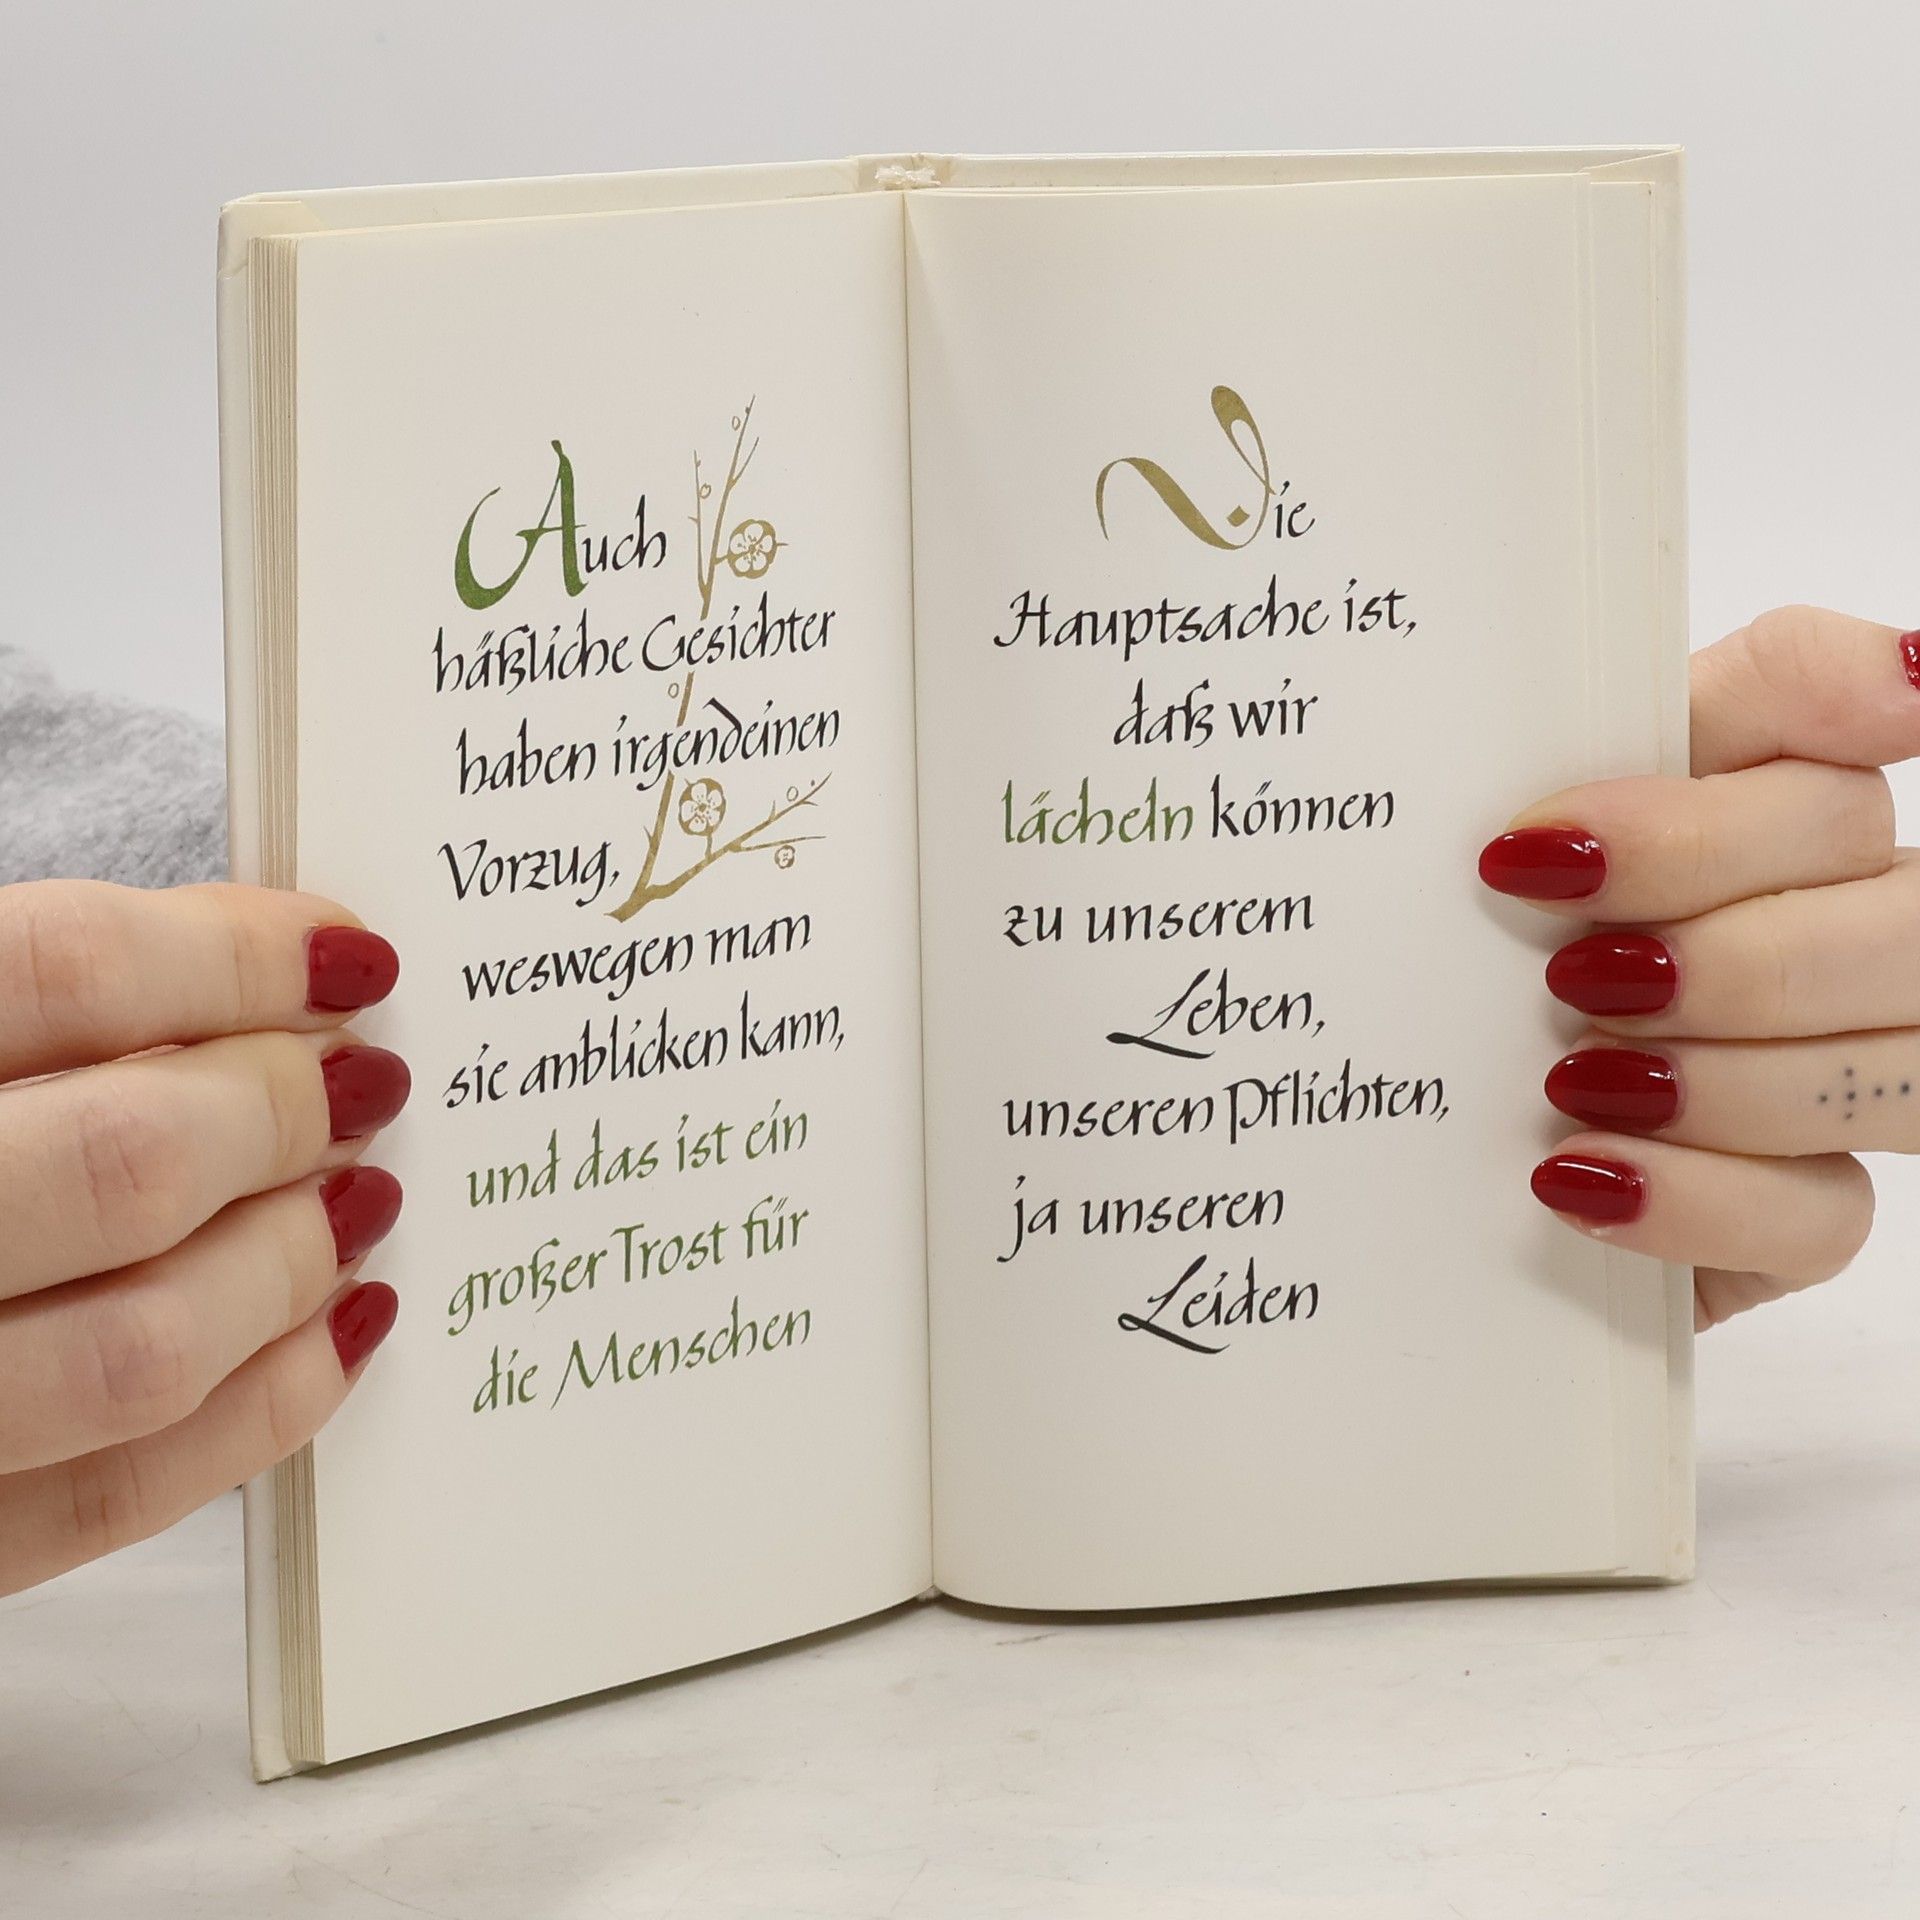 Auch
häßliche Gesichter
haben irgendeinen
Vorzug,
weswegen man
sie anblicken kann,
und das ist ein
großer Trost für
die Menschen
Die
Hauptsache ist,
daß wir
lächeln können
zu unserem
Leben,
unseren Pflichten,
ja unseren
Leiden